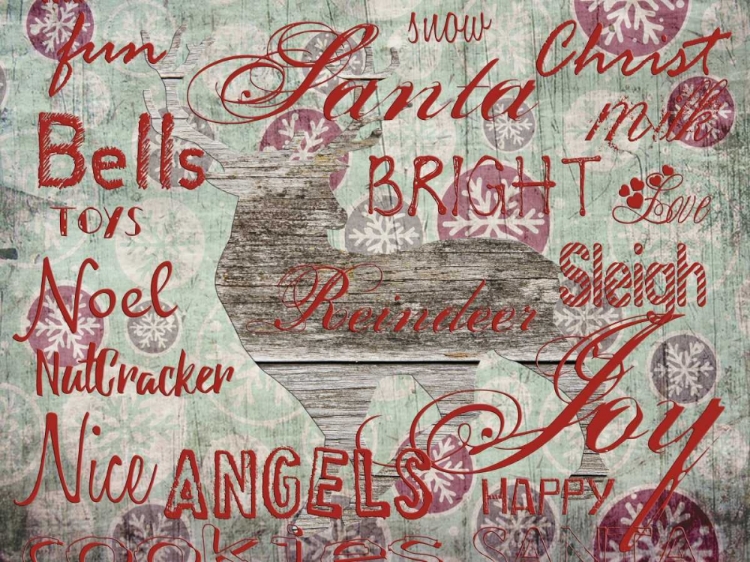 fun
snow
Santa
Christ
milk
Bells
BRIGHT
TOYS
Love
Noel
Reindeer
Sleigh
NutCracker
Joy
Nice
ANGELS
HAPPY
cookies
SANTA